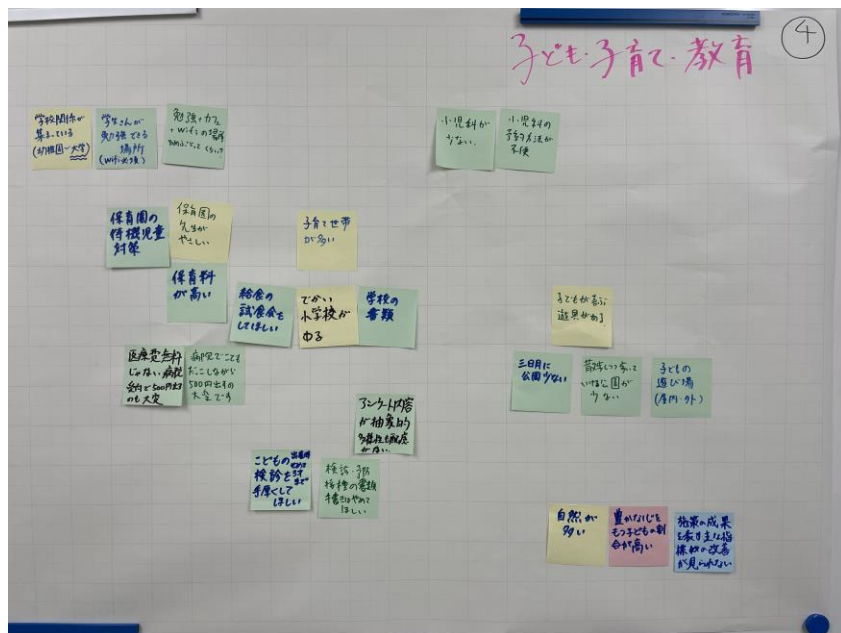 ④
子ども・子育て・教育
学校関係が
集まっている
(幼稚園〜大学)
学生さんが
勉強できる
場所
(Wifi必須)
勉強・カフェ
・Wifiの場所
小児科が
少ない。
小児科の
予約方法が
不便
保育園の
待機児童
対策
保育園の
先生が
やさしい
子育て世帯
が多い
保育料
が高い
給食の
試食会を
してほしい
でかい
小学校が
ある
学校の
書類
子どもが喜ぶ
遊具がある
医療費無料
じゃない 病院
受付で500円出す
のも大変
病院でこども
だっこしながら
500円出すの
大変です
三日月に
公園少ない
散歩しつつ寄って
いける公園が
少ない
子どもの
遊び場
(屋内・外)
アンケート内容
が抽象的
こどもの
検診を
手厚くして
ほしい
検診・予防
接種の書類
手書きはやめて
ほしい
自然が
多い
豊かな心を
もつ子どもの割
合が高い
施策の成果
を表す主な指
標数の改善
が見られない